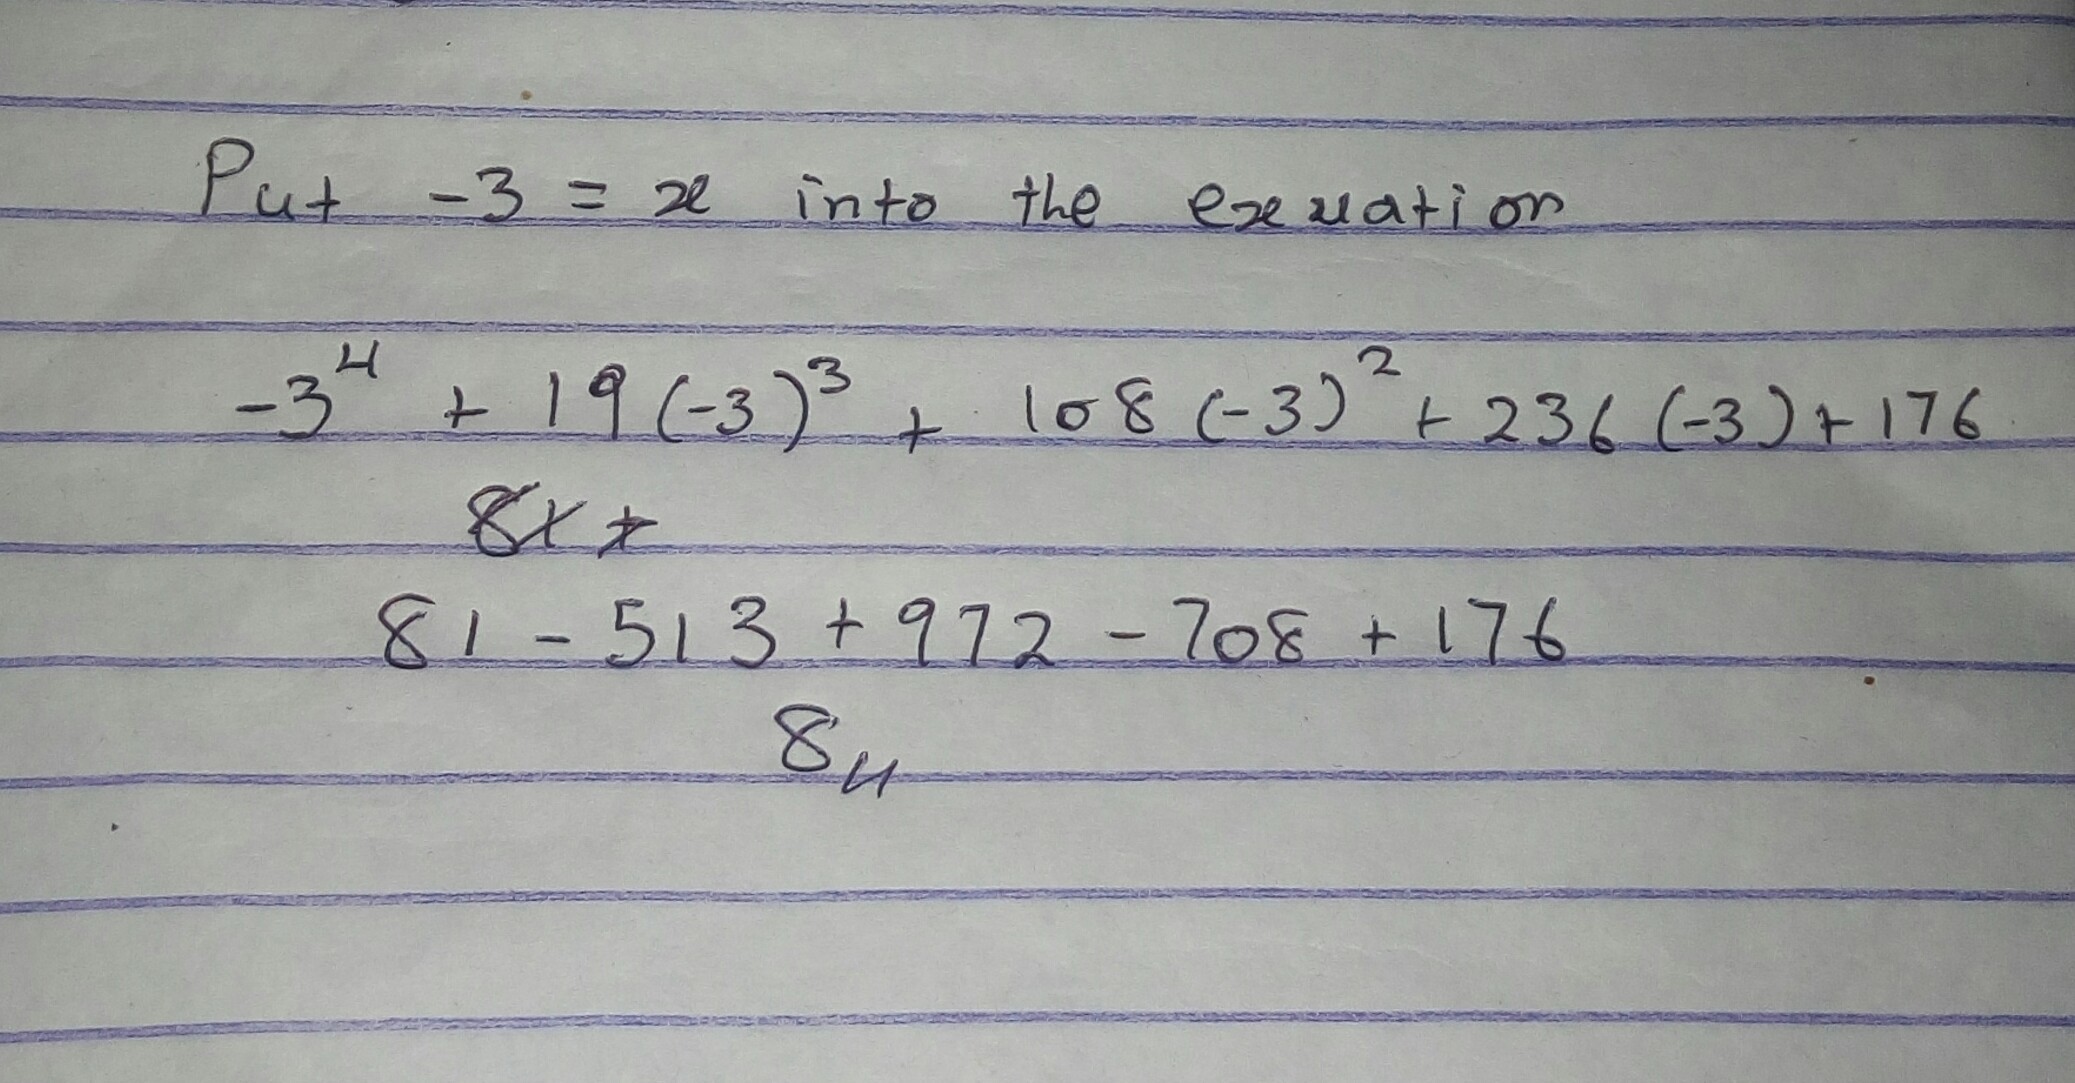 Put -3 = x into the exuation
-3⁴ + 19(-3)³ + 108(-3)² + 236(-3) + 176
81 +
81 - 513 + 972 - 708 + 176
8